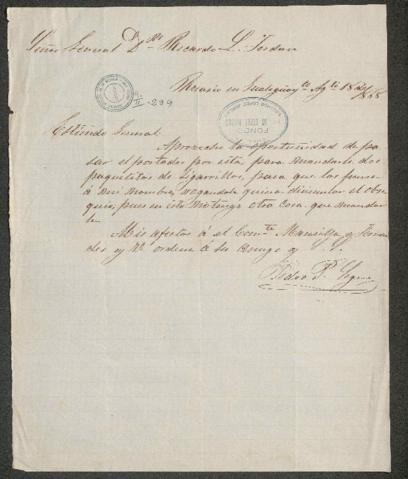 Señor General Dn. Ricardo L. Jordan
Rosario en Gualeguay Agto 18 de
1868
II-299
FONDO
Estimado General
Aprovecho la oportunidad de pa
sar el portador por esta, para mandarle dos
paquetitos de Sigarrillos, para que los fume
á mi nombre, rogandole quiera disimular el obse
quio, pues en esta no tengo otra cosa que mandar
le
Mis afectos á el Comte. Mansilla y
des y Vd. ordene á su Amigo y S.
Pedro P.